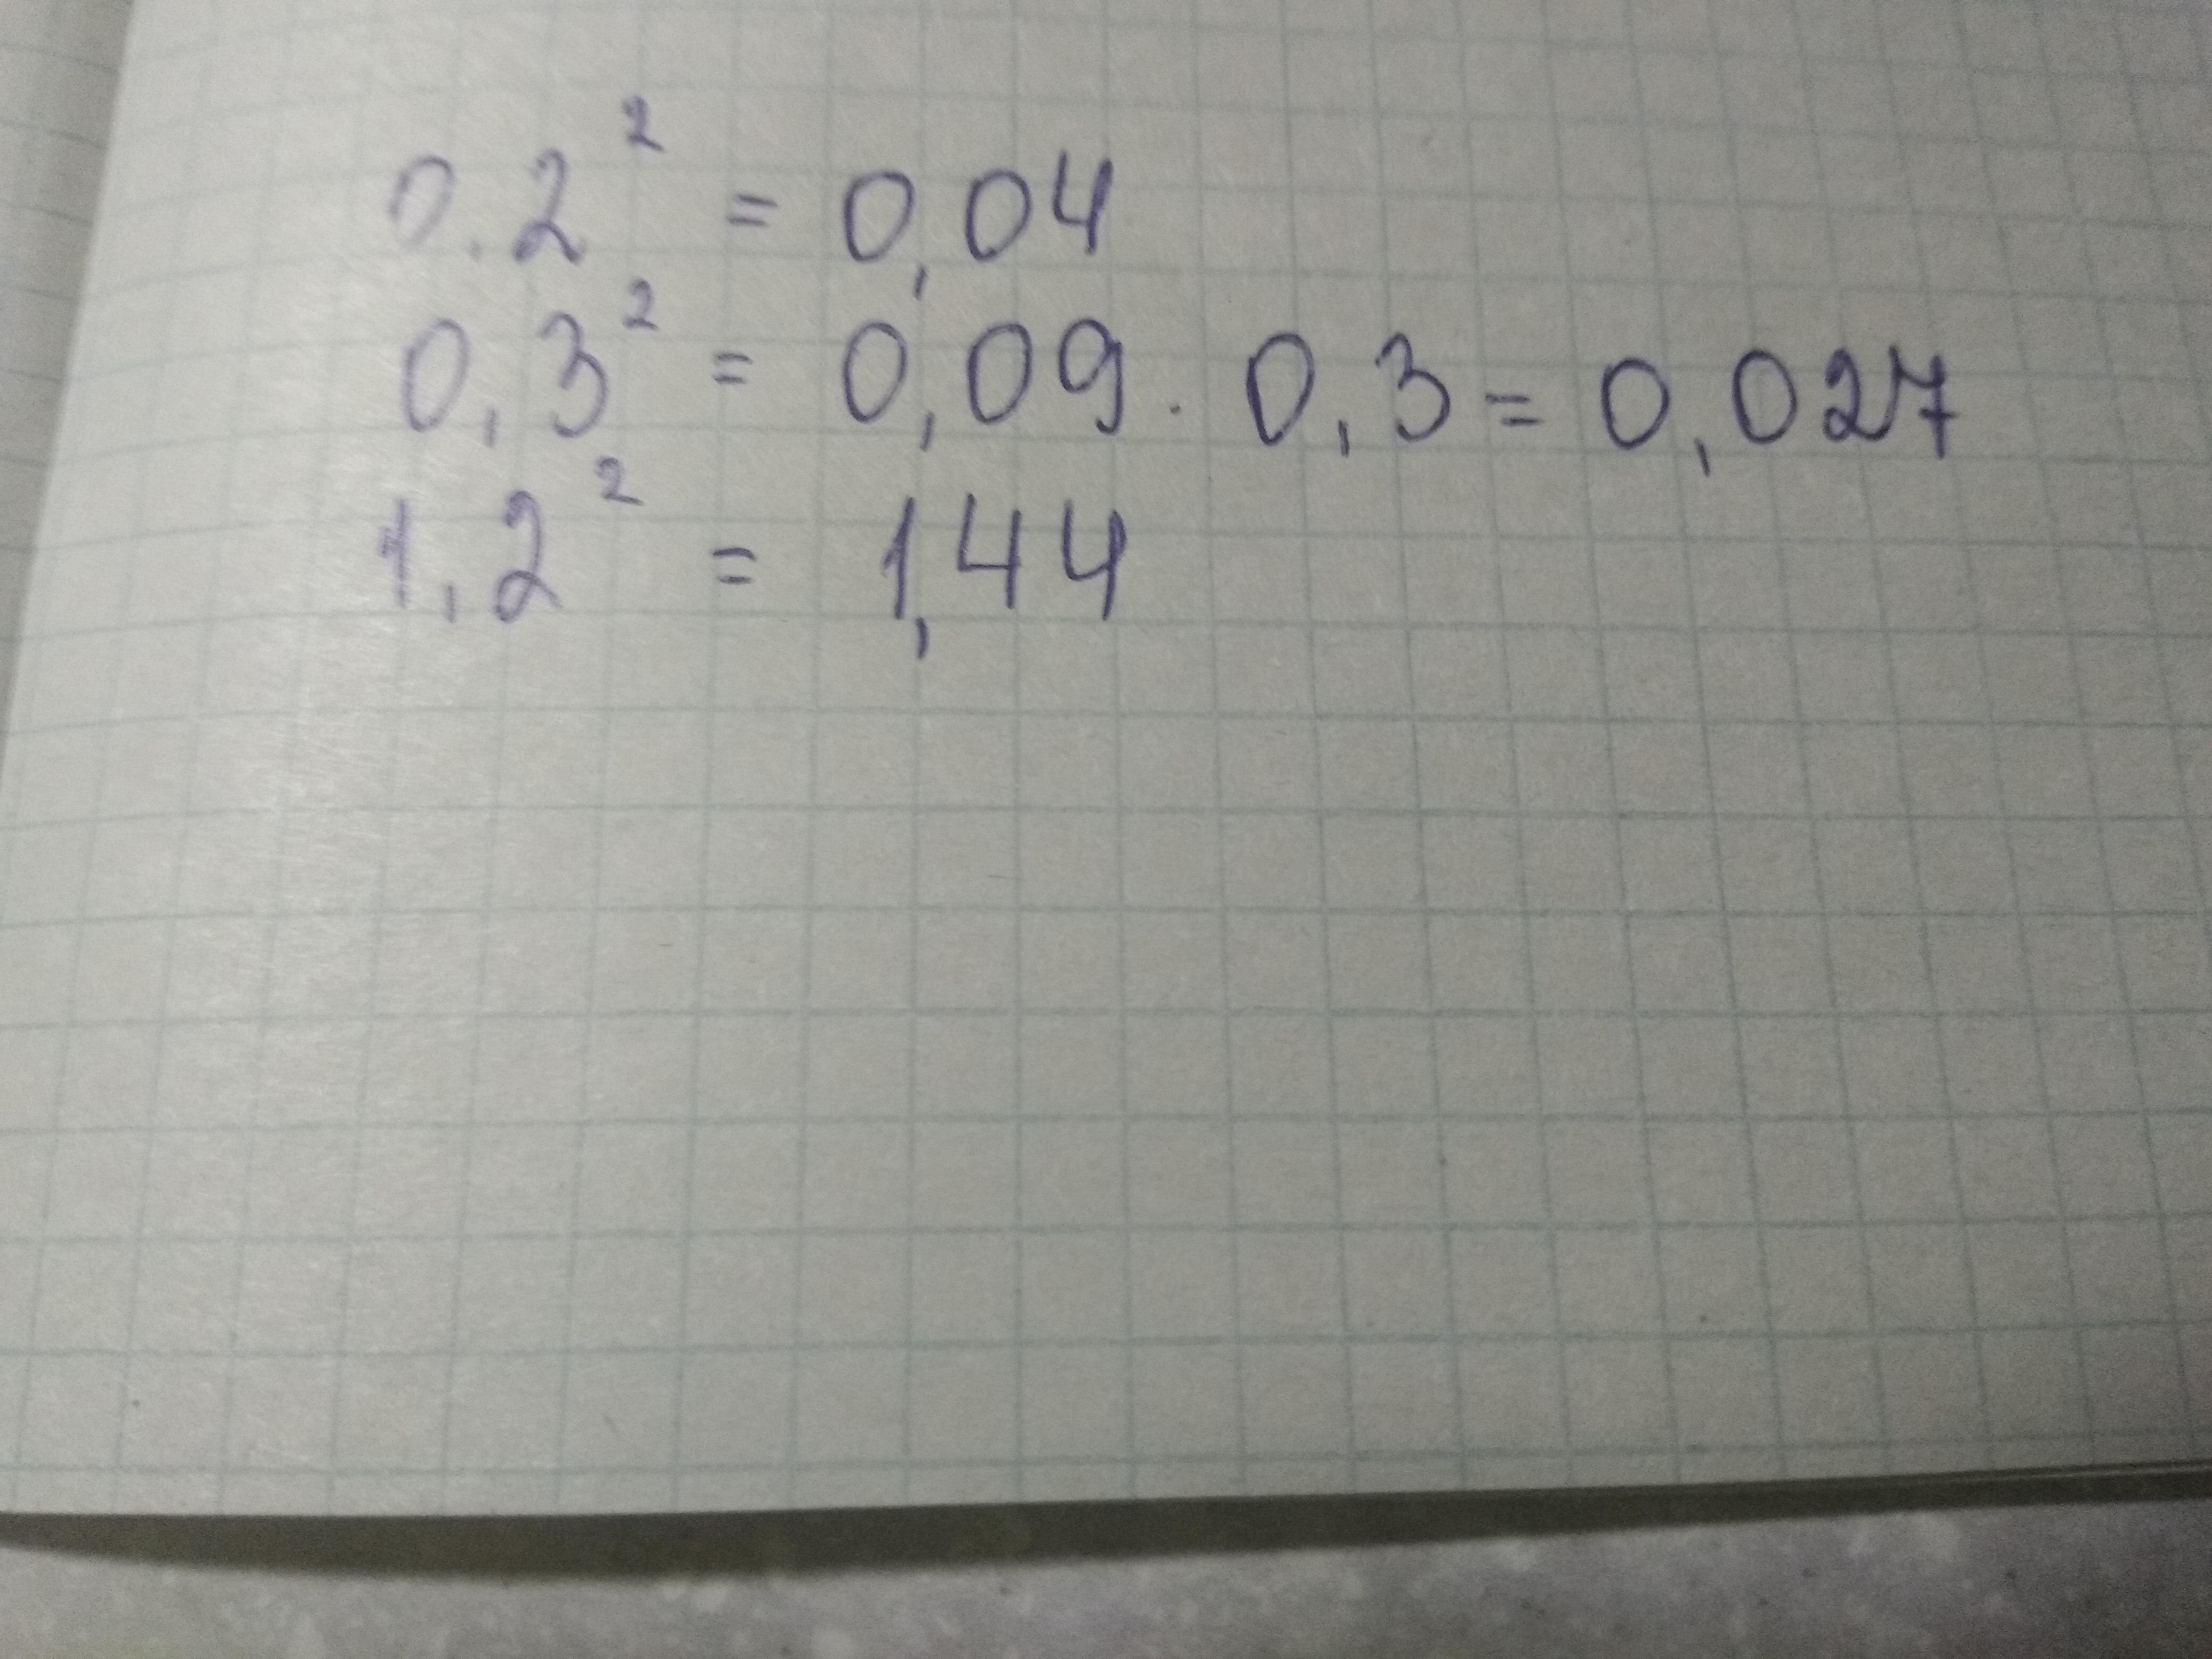 0.2² = 0,04
0,3² = 0,09 · 0,3 = 0,027
1,2² = 1,44